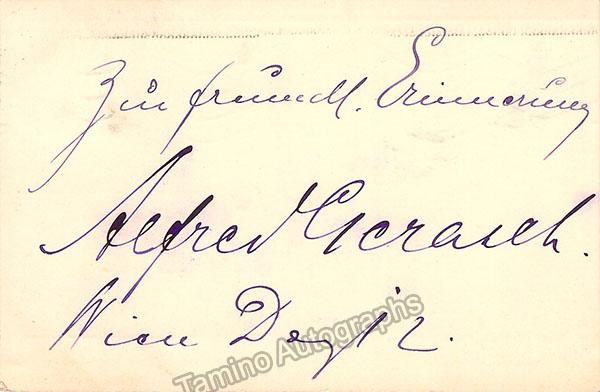 Zur freundl. Erinnerung
Alfred Gerasch.
Wien Dez 12.
Tamino Autographs